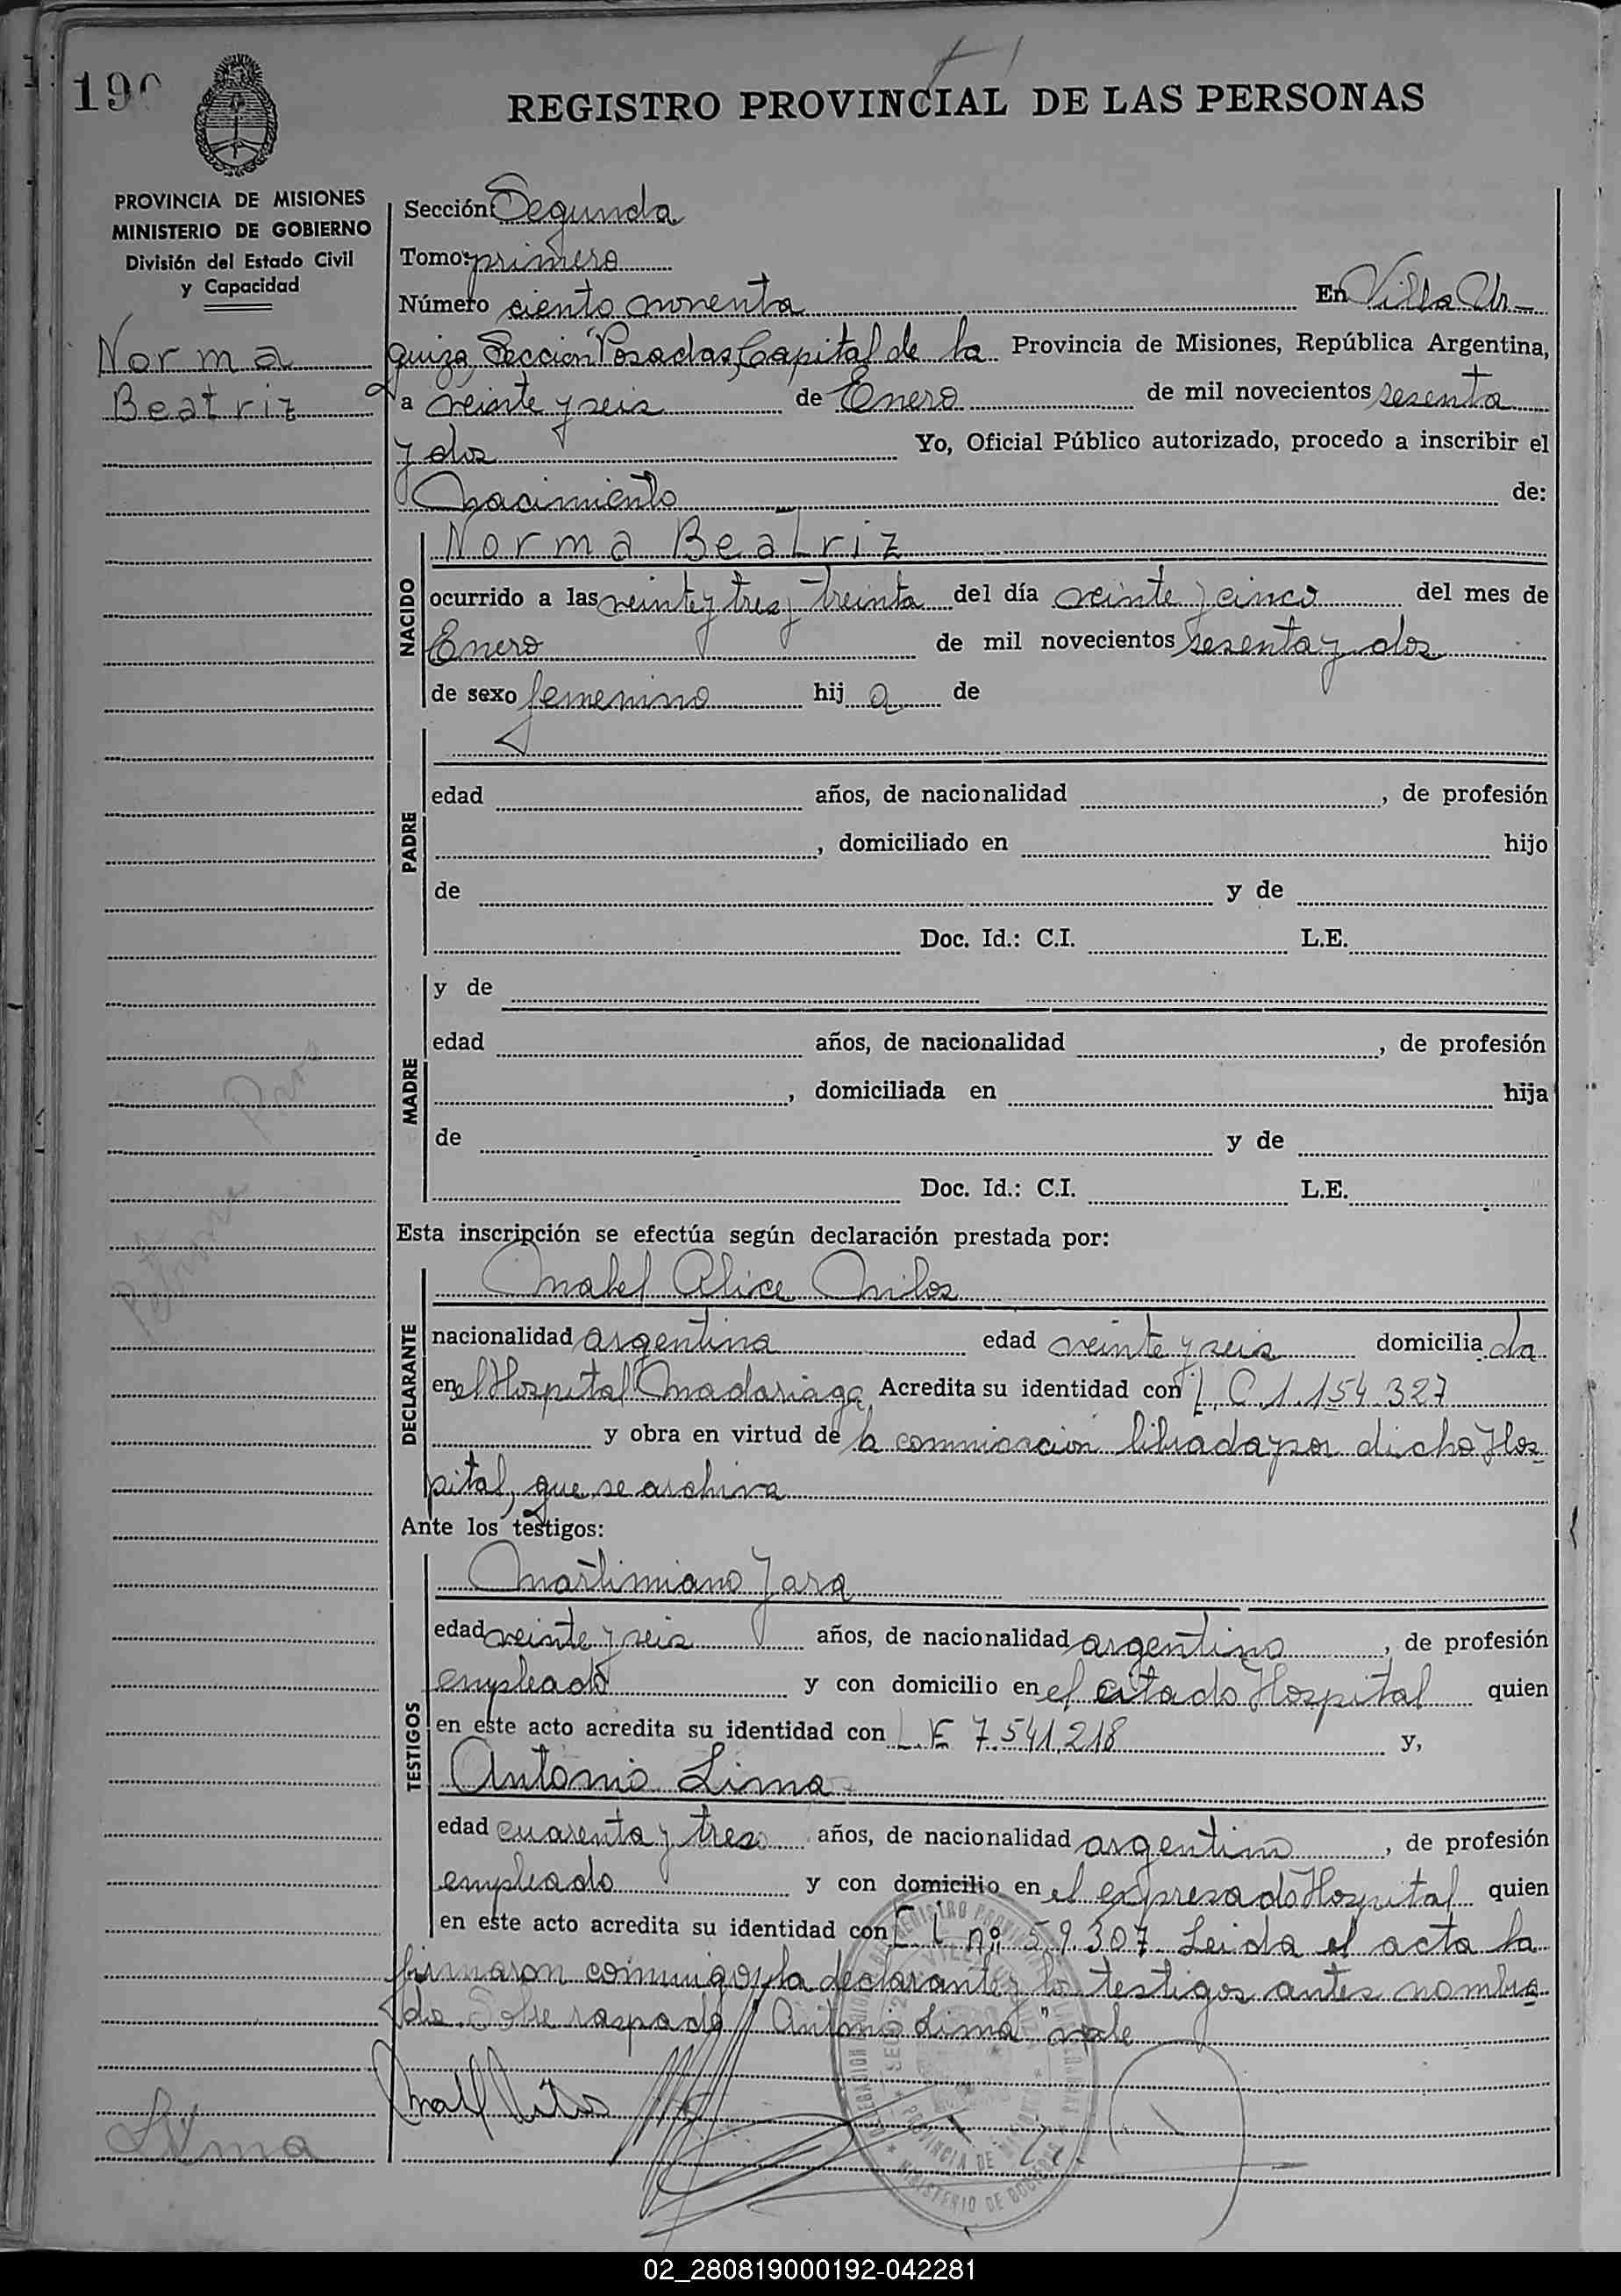 190
REGISTRO PROVINCIAL DE LAS PERSONAS
PROVINCIA DE MISIONES
MINISTERIO DE GOBIERNO
División del Estado Civil
y Capacidad
Norma
Beatriz
Sección: Segunda
Tomo: primero
Número ciento noventa En Villa Ur-
quiza, Sección Posadas, Capital de la Provincia de Misiones, República Argentina,
a veinte y seis de Enero de mil novecientos sesenta
y dos Yo, Oficial Público autorizado, procedo a inscribir el
Nacimiento de:
NACIDO
Norma Beatriz
ocurrido a las veinte y tres y treinta del día veinte y cinco del mes de
Enero de mil novecientos sesenta y dos
de sexo femenino hij a de
PADRE
edad años, de nacionalidad , de profesión
, domiciliado en hijo
de y de
Doc. Id.: C.I. L.E.
MADRE
y de
edad años, de nacionalidad , de profesión
, domiciliada en hija
de y de
Doc. Id.: C.I. L.E.
Esta inscripción se efectúa según declaración prestada por:
DECLARANTE
Mabel Alice Milos
nacionalidad argentina edad veinte y seis domicilia da
en el Hospital Madariaga Acredita su identidad con L.C 1.154.327
y obra en virtud de la comunicación librada por dicho Hos-
pital, que se archiva
Ante los testigos:
TESTIGOS
Martimiano Jara
edad veinte y seis años, de nacionalidad argentino, de profesión
empleado y con domicilio en el citado Hospital quien
en este acto acredita su identidad con L.E 7.541.218 y,
Antonio Lima
edad cuarenta y tres años, de nacionalidad argentino, de profesión
empleado y con domicilio en el expresado Hospital quien
en este acto acredita su identidad con nº 59.307 Leida el acta la
firmaron conmigo, la declarante y los testigos antes nombra-
dos. Sobre raspado "Antonio Lima" vale
Lima
02_280819000192-042281